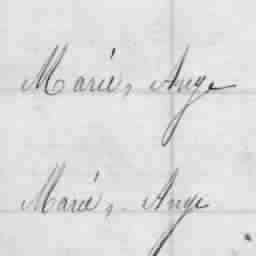 Marie, Ange
Marie, Ange